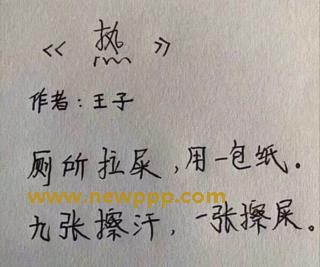 《热》
作者:王子
厕所拉屎,用一包纸.
www.newppp.com
九张擦汗,一张擦屎。